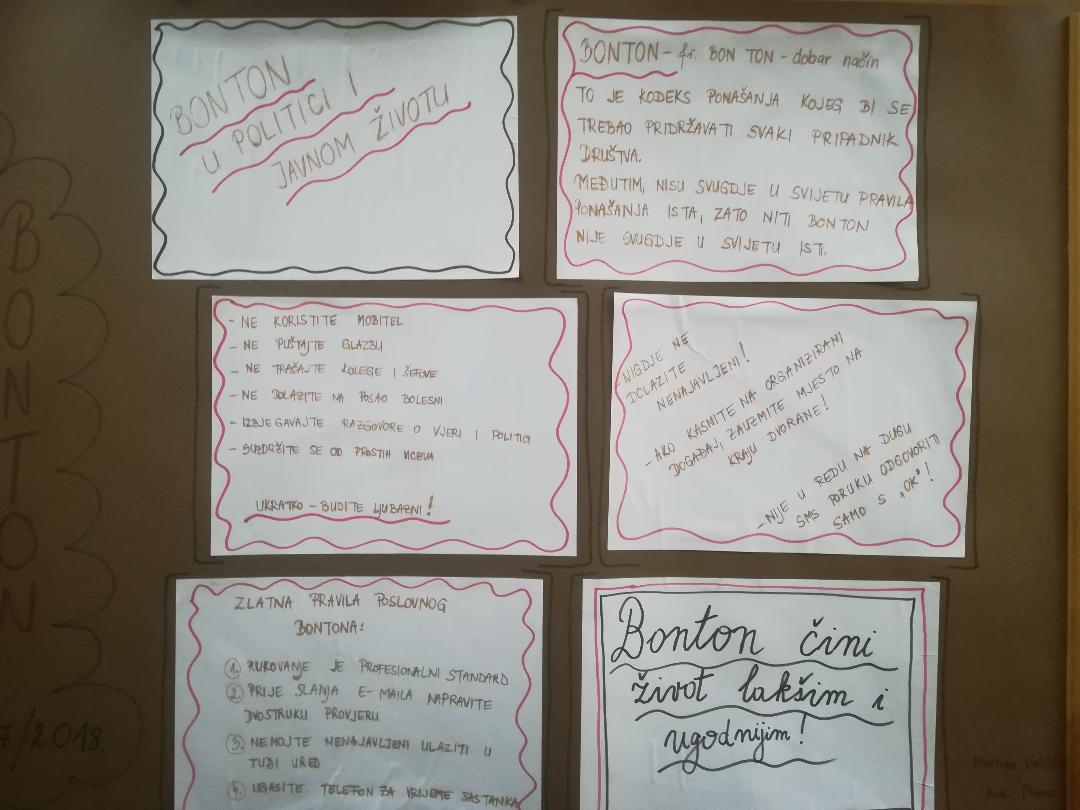 BONTON
BONTON
U POLITICI I
JAVNOM ŽIVOTU
BONTON - fr. BON TON - dobar način
TO JE KODEKS PONAŠANJA KOJEG BI SE
TREBAO PRIDRŽAVATI SVAKI PRIPADNIK
DRUŠTVA.
MEĐUTIM, NISU SVUGDJE U SVIJETU PRAVILA
PONAŠANJA ISTA, ZATO NITI BONTON
NIJE SVUGDJE U SVIJETU ISTI.
- NE KORISTITE MOBITEL
- NE PUŠTAJTE GLAZBU
- NE TRAČAJTE KOLEGE I ŠEFOVE
- NE DOLAZITE NA POSAO BOLESNI
- IZBJEGAVAJTE RAZGOVORE O VJERI I POLITICI
- SUZDRŽITE SE OD PROSTIH VICEVA
UKRATKO - BUDITE LJUBAZNI!
- NIGDJE NE
DOLAZITE
NENAJAVLJENI!
- AKO KASNITE NA ORGANIZIRANI
DOGAĐAJ, ZAUZMITE MJESTO NA
KRAJU DVORANE!
- NIJE U REDU NA DUGU
SMS PORUKU ODGOVORITI
SAMO S „OK"!
ZLATNA PRAVILA POSLOVNOG
BONTONA:
1. RUKOVANJE JE PROFESIONALNI STANDARD
2. PRIJE SLANJA E-MAILA NAPRAVITE
DVOSTRUKU PROVJERU
3. NEMOJTE NENAJAVLJENI ULAZITI U
TUĐI URED
4. UGASITE TELEFON ZA VRIJEME SASTANKA
Bonton čini
život lakšim i
ugodnijim!
7./2018.
Martina